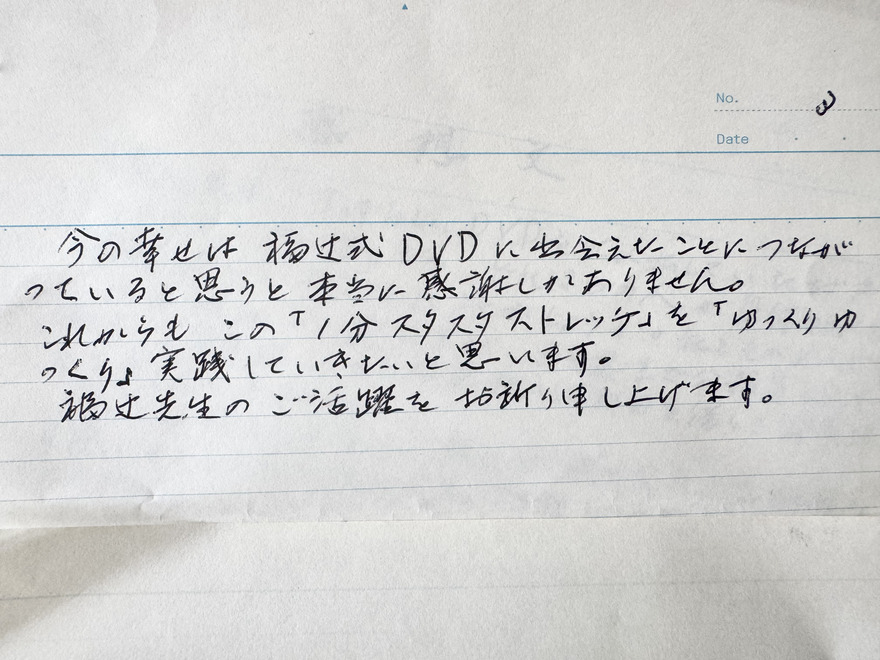 No. 3
Date
今の幸せは 福辻式DVDに出会えたことにつなが
っていると思うと本当に感謝しかありません。
これからも この「1分スタスタストレッチ」を「ゆっくりゆ
っくり」実践していきたいと思います。
福辻先生の ご活躍を お祈り申し上げます。